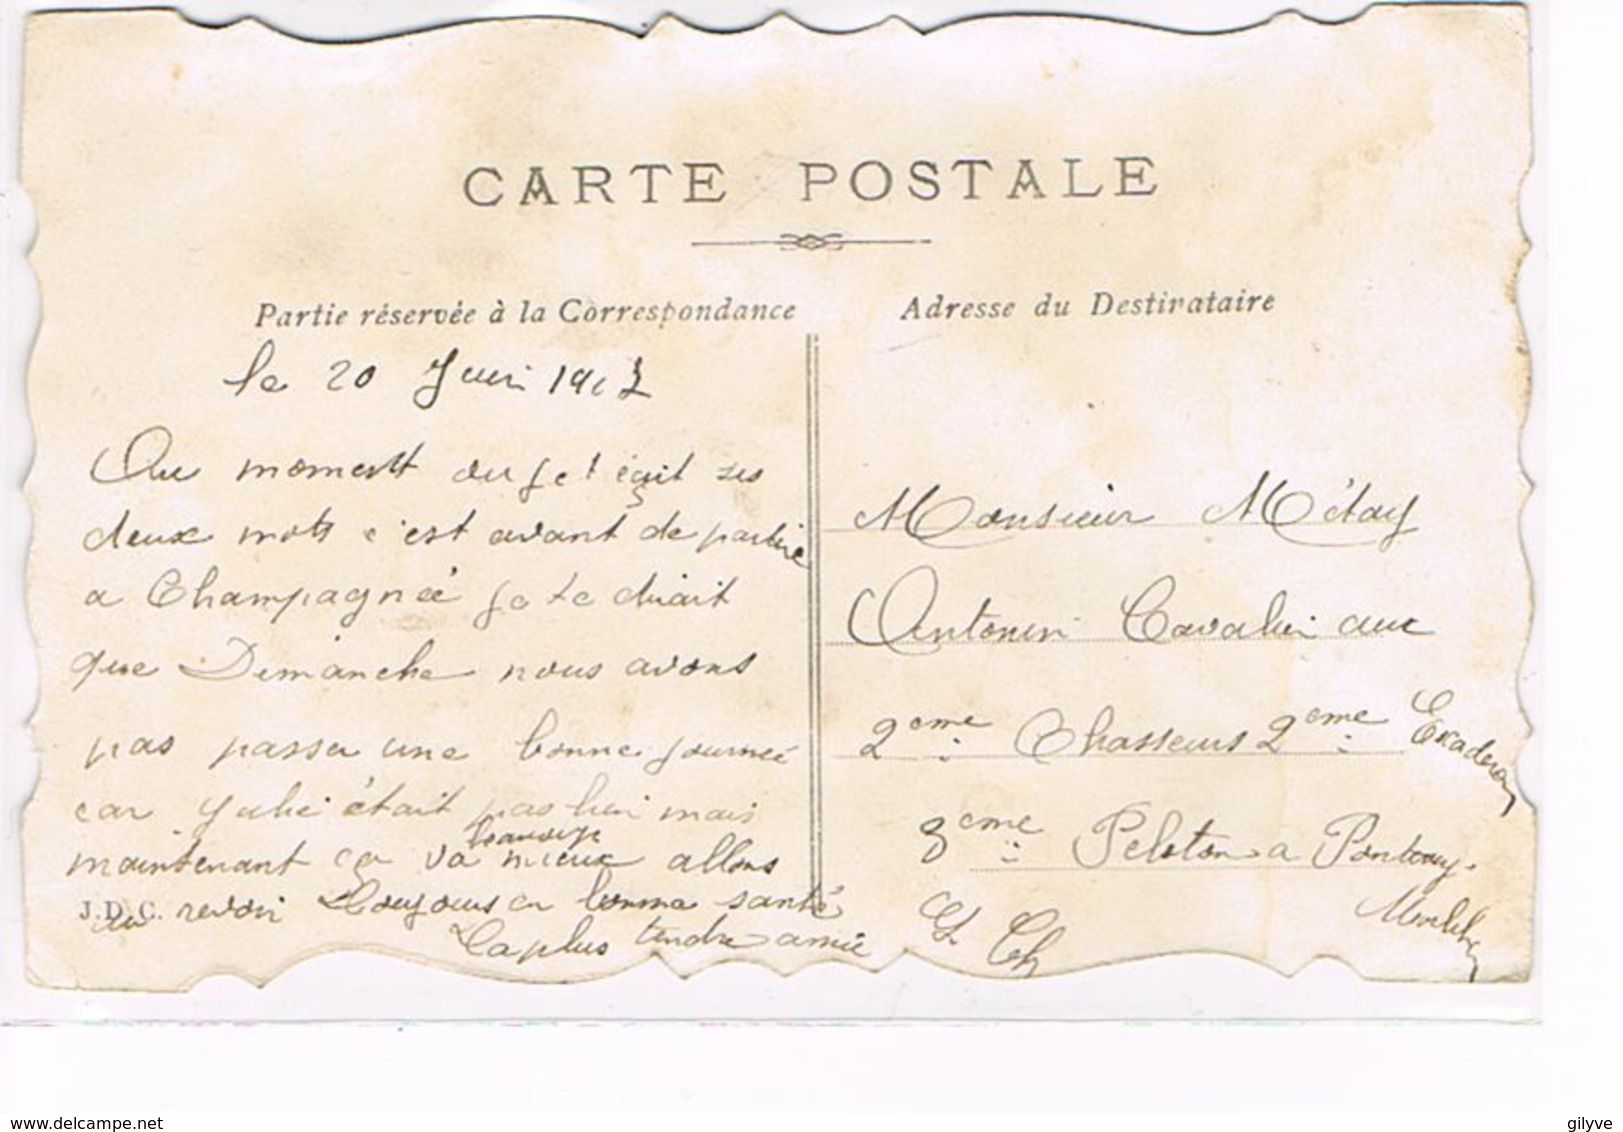 CARTE POSTALE
Partie réservée à la Correspondance
le 20 Juin
Au moment ou je t'écrit ses
deux mots c'est avant de partire
a Champagnée je te dirait
que Dimanche nous avons
pas passer une bonne journeé
car Julie était pas bien mais
beaucoup
maintenant ça va mieux allons
J.D.C.
au revoir Toujours en bonne santé
La plus tendre amie
Adresse du Destinataire
Monsieur Métay
Antonin Cavalier aux
2eme Chasseurs 2eme Escadron
3eme Peloton a Pontivy
Morbihan
delcampe.net
gilyve